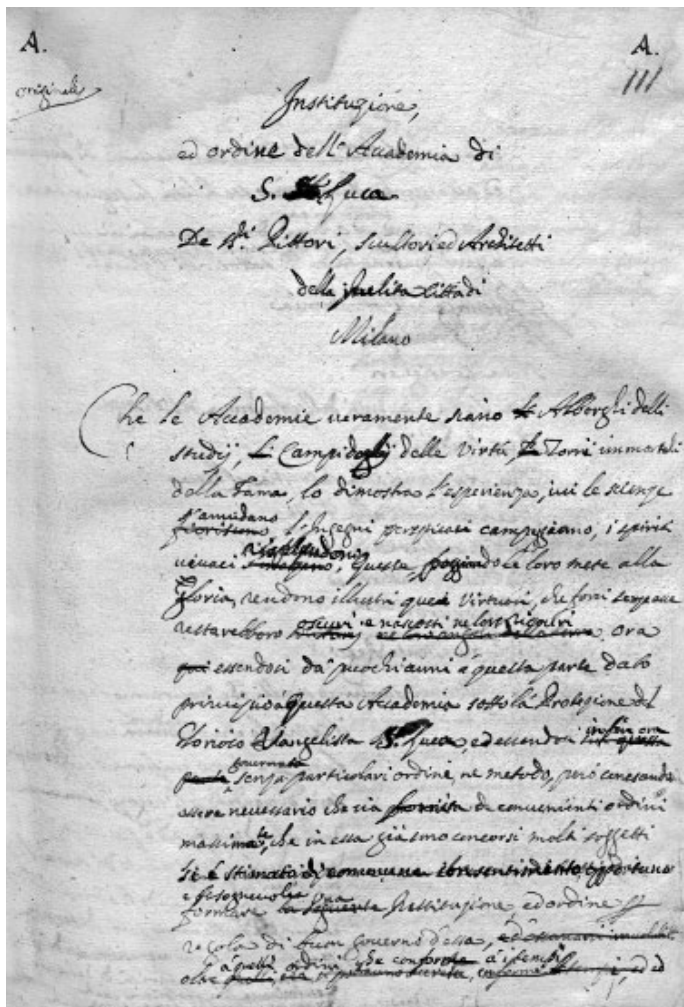 A. A.
originale 111
Institu&zione,
ed ordine dell'Accademia di
S. Luca
De Pittori, scultori ed Architetti
della Inclita Città di
Milano
Che le Accademie veramente siano Alberghi delli
studij, Campidoglij delle Virtù, Torri immortali
della Fama, lo dimostra l'esperienza, ivi le scienze
s'annidano
l'Ingegni perspicaci campeggiano, i spiriti
risplendono
vivaci, queste, poggiando le loro mete alla
Gloria, rendono illustri quei Virtuosi, che forsi sempre
oscuri e nascosti ne loro
restarebbero ora
essendosi da puochi anni à questa parte dato
principio à questa Accademia sotto la Protezione del
Glorioso Evangelista S. Luca, ed essendo
governata
senza particolari ordine, ne metodo, però conoscendo
essere necessario che sia de convenienti ordini
massima.te, che in essa già sono concorsi molti soggetti
si è stimato opportuno
e bisognevole una
formare Institutione ed ordine
regola di buon governo d'essa,
à quelli ordini che conforme à i tempi
oltre